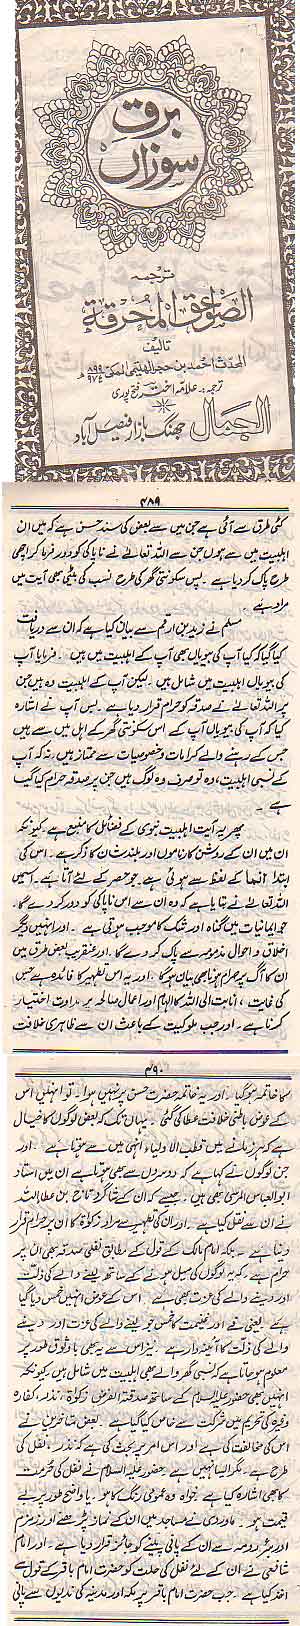 برق
سوزاں
ترجمہ
الصواعق المحرقة
تالیف
المحدث احمد بن حجر الہیتمی المکی ۸۹۹ھ ۹۷۴
ترجمہ: علامہ اختر فتح پوری
الجمال جھنگ بازار فیصل آباد
۴۸۹
کئی طرق سے آئی ہے جن میں سے بعض کی سند حسن ہے کہ میں ان
اہلبیت میں سے ہوں جن سے اللہ تعالےٰ نے ناپاکی کو دور فرما کر اچھی
طرح پاک کر دیا ہے۔ پس سکونتی گھر کی طرح نسب کی بیٹی بھی آیت میں
مراد ہے۔
مسلم نے زید بن ارقم سے بیان کیا ہے کہ ان سے دریافت
کیا گیا کہ کیا آپ کی بیویاں بھی آپ کے اہلبیت میں ہیں۔ فرمایا آپ
کی بیویاں اہلبیت میں شامل ہیں۔ لیکن آپ کے اہلبیت وہ ہیں جن
پر اللہ تعالےٰ نے صدقہ کو حرام قرار دیا ہے۔ پس آپ نے اشارہ
کیا کہ آپ کی بیویاں آپ کے اس سکونتی گھر کے اہل میں سے ہیں
جس کے رہنے والے کرامات و خصوصیات سے ممتاز ہیں۔ نہ کہ آپ
کے نسبی اہلبیت، وہ تو صرف وہ لوگ ہیں جن پر صدقہ حرام کیا گیا
ہے۔
پھر یہ آیت اہلبیت نبوی کے فضائل کا منبع ہے کیونکہ
ان میں ان کے روشن کارناموں اور بلندشان کا ذکر ہے۔ اس کی
ابتدا انما کے لفظ سے ہوئی ہے۔ جو حصر کے لئے آتا ہے۔ اسمیں
اللہ تعالےٰ نے بتایا ہے کہ وہ ان سے اس ناپاکی کو دور کر دے گا۔
جو ایمانیات میں گناہ اور شک کا موجب ہوتی ہے۔ اور انہیں دیگر
اخلاق و احوال مذمومہ سے پاک کر دے گا۔ اور عنقریب بعض طرق میں
ان کا آگ پر حرام ہونا بھی بیان ہوگا۔ اور یہ اس تطہیر کا فائدہ ہے جس
کی غایت، انابت الی اللہ کا الہام اور اعمال صالحہ پر مداومت اختیار
کرنا ہے۔ اور جب ملوکیت کے باعث ان سے ظاہری خلافت
۴۹۰
کا خاتمہ ہوگیا۔ اور یہ خاتمہ حضرت حسن پر نہیں ہوا۔ تو انہیں اس
کے عوض باطنی خلافت عطا کی گئی۔ یہاں تک کہ بعض لوگوں کا خیال
ہے کہ ہر زمانے میں قطب الاولیاء انہی میں سے ہوتا ہے۔ اور
جن لوگوں نے کہا ہے کہ دوسروں سے بھی ہوتا ہے ان میں استاد
ابو العباس المرسی بھی ہیں۔ جیسے کہ ان کے شاگرد تاج بن عطا اللہ
نے ان سے نقل کیا ہے۔ اور ان کی تطہیر سے مراد زکوٰة کا ان پر حرام قرار
دینا ہے۔ بلکہ امام مالک کے قول کے مطابق نفلی صدقہ بھی ان پر
حرام ہے۔ کہ یہ لوگوں کی میل ہونے کے ساتھ لینے والے کی ذلت
اور دینے والے کی عزت بھی ہے۔ اس کے عوض انہیں خمس دیا گیا
ہے۔ یعنی فے اور غنیمت کا خمس جو لینے والے کی عزت اور دینے
والے کی ذلت کا آئینہ دار ہے۔ نیز اس سے یہ بھی باوثوق طور پر
معلوم ہو جاتا ہے کہ نسبی گھر والے بھی اہلبیت میں شامل ہیں کیونکہ
انہیں بھی حضور علیہ السلام کے ساتھ صدقۃ الفرض زکوٰة، نذر، کفارہ
وغیرہ کی تحریم میں شرکت سے خاص کیا گیا ہے۔ بعض متاخرین نے
اس کی مخالفت کی ہے اور اس امر پر بحث کی ہے کہ نذر، نفل کی
طرح ہے۔ مگر ایسا نہیں ہے۔ حضور علیہ السلام نے نفل کی حرمت
کا بھی اشارہ کیا ہے۔ خواہ وہ عمومی رنگ کا ہو۔ یا واضح طور پر بے
قیمت ہو۔ ماوردی نے مساجد میں ان کے نماز پڑھنے اور زمزم
اور بئر رومہ سے ان کے پانی پینے کو جائز قرار دیا ہے۔ اور امام
شافعی نے ان کے لئے نفل کی حلت کو حضرت امام باقر کے قول سے
اخذ کیا ہے۔ جب حضرت امام باقر پر مکہ اور مدینہ کی ندیوں سے پانی